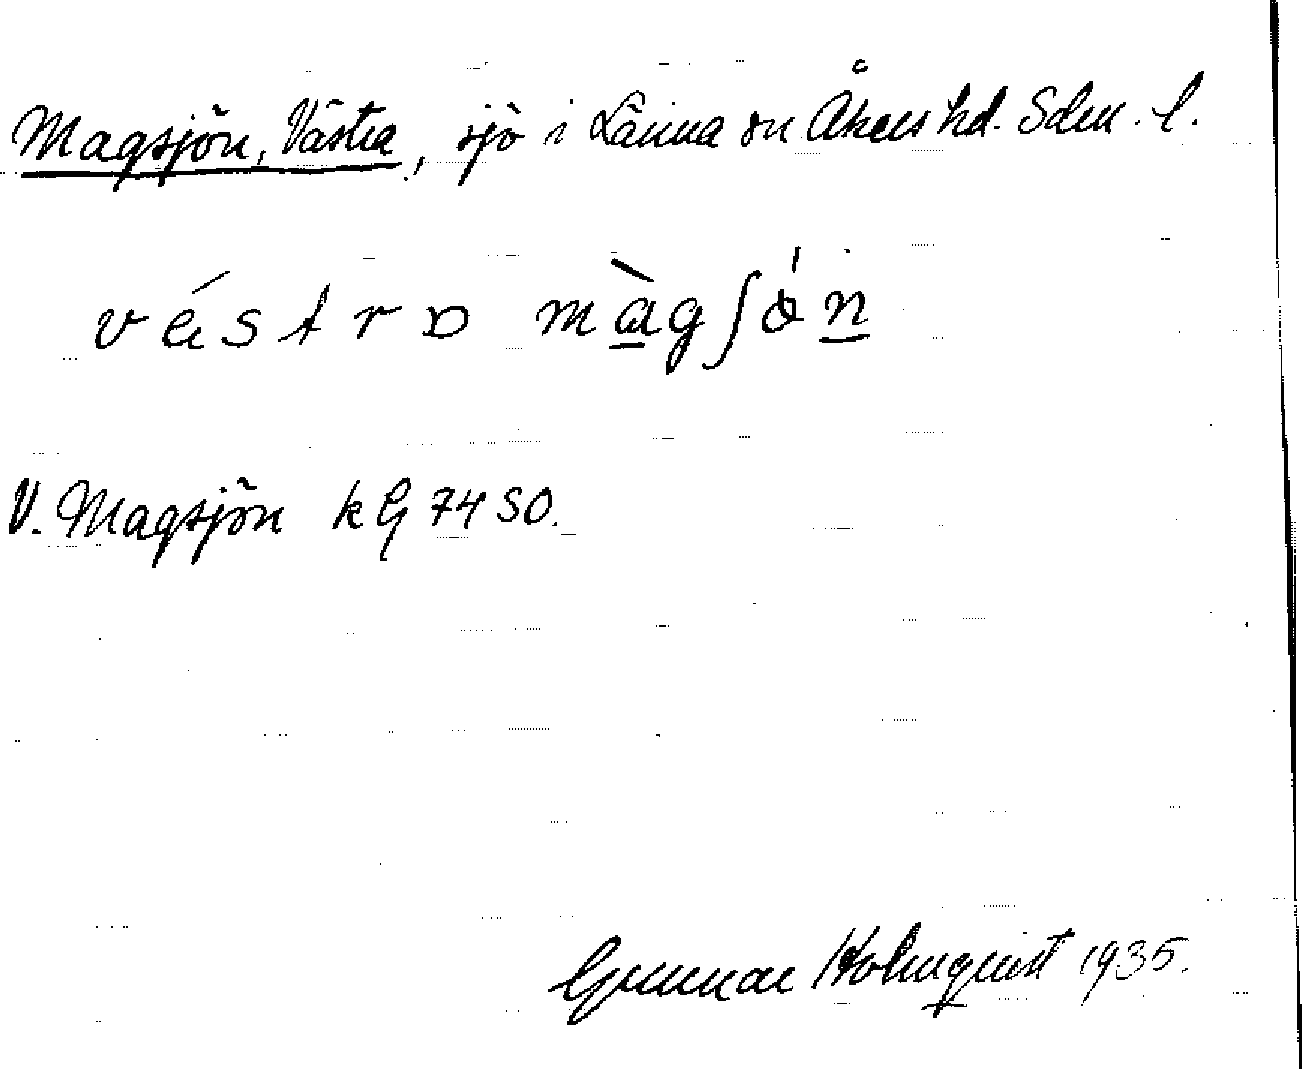 Magsjön, Västra, sjö i Länna sn Åkers hd. Sdm. l.
véstrɒ màgʃön
V. Magsjön kG 74 SO.
Gunnar Holmquist 1935.